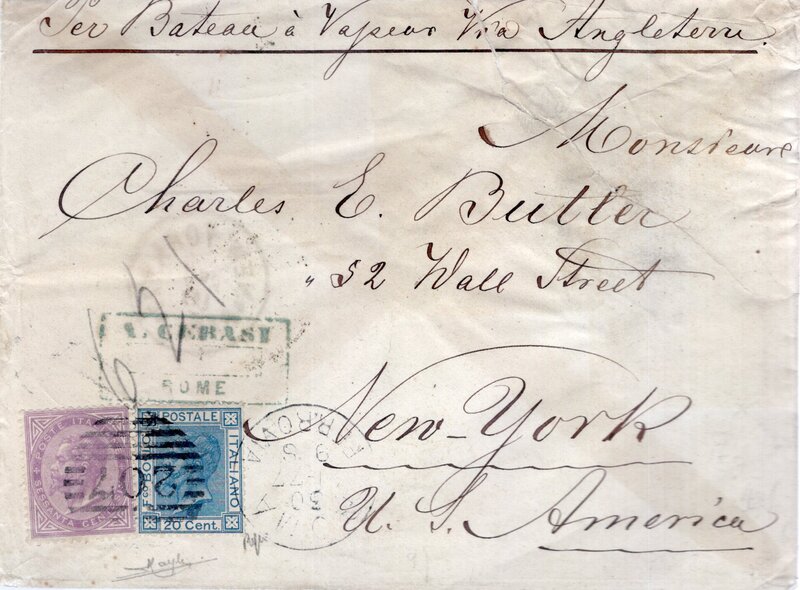 Per Bateau à Vapeur Via Angleterre.
Monsieur
Charles E. Butler
" 52 Wall Street
New-York
U. S. America
A. GERASI
ROME
POSTE ITAL
SESSANTA CE
207
FCO BOLLO
POSTALE
ITALIANO
20 Cent.
ROMA
30